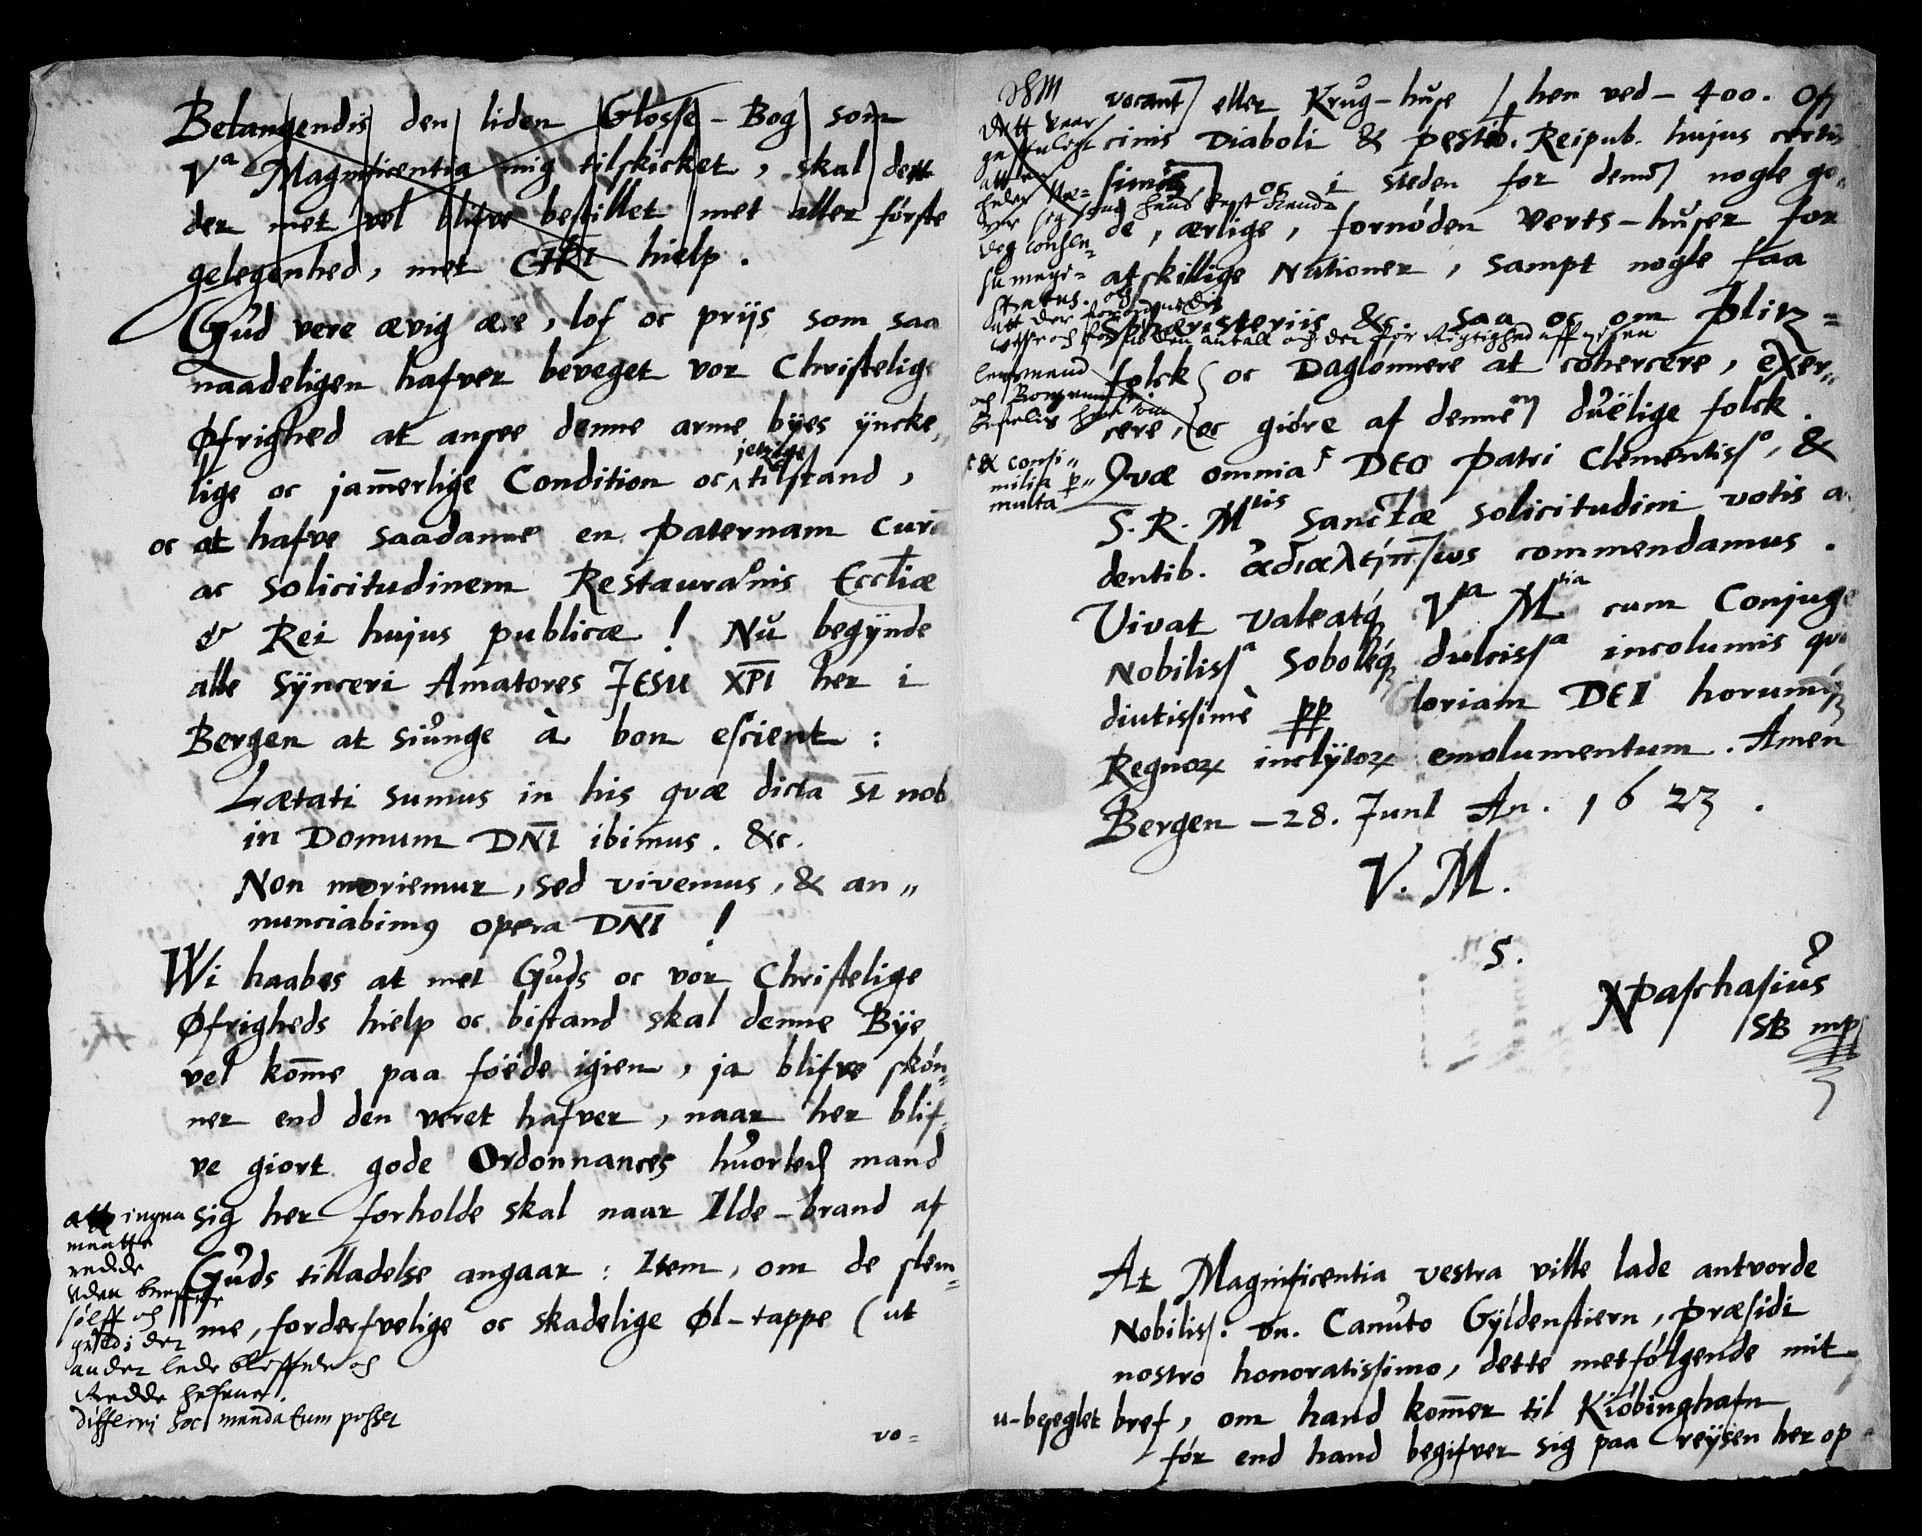 Belangendis den liden Glosse-Bog som
Va Magnificentia mig tilskicket, skal dett
der met vel blifve bestillet met aller første
gelegenhed, met hielp.
Gud vere ævig ære, lof oc priis som saa
naadeligen hafver beveget vor Christelige
Øfrighed at ansee denne arme byes yncke„
lige oc jam̄erlige Condition oc jetzige tilstand,
oc at hafve saadanne en paternam cura
ac solicitudinem Restaura͠onis Eccl͞iæ
& Rei hujus publicæ! Nu begynde
alle Synceri Amatores JESU XPI her i
Bergen at siunge à bon escient:
Lætati sumus in his qvæ dicta st nob
in Domum DNI ibimus. &c.
Non moriemur, sed vivemus, & an„
nunciabimus opera DNI!
Wi haabes at met Guds oc vor Christelige
Øfrigheds hielp oc bistand skal denne Bye
vel kom̄e paa föede igien, ja blifve skön„
ner end den veret hafver, naar her blif„
ve giort gode Ordonnances hvorled mand
sig her forholde skal naar Ilde-brand af
Guds tilladelse angaar: Item, om de slem„
me, forderfvelige oc skadelige Øl-tappe (ut
ingen
maatte
redde
uden
sölff och
guld i der
under lade bleffue och
Redde
differri hoc mandatum posset
vo=
vocant) eller Krug-huse hen ved - 400. Offi
cinis Diaboli & pestib. Reipub. hujus certis
simis oc i steden for dem nogle go„
de, ærlige, fornöden Verts-huser for
atskillige Nationer, sampt nogle faa
Sphæristeriis &c. saa oc om Plitz=
folck oc Daglonnere at cohercere, exer„
cere, oc giöre af dennem duëlige folck.
Qvæ omnia DEO Patri Clementisso, &
S. R. Mtis Sanctæ solicitudini votis a
dentib. ἀδιαλείπτως commendamus.
Vivat valeatq; Va Mtia cum Conjuge
Nobilissa Soboleq; dulcissa incolumis qv
diutissimè pp Gloriam DEI horumq;
Regnor inclytor emolumentum. Amen
Bergen - 28. Junl An. 1623.
V. M.
S.
N Paschasius
SB mp
& consi„
milia p„
multa
At Magnificentia vestra ville lade antvorde
Nobiliss. Dn. Canuto Gyldenstiern, Præsidi
nostro honoratissimo, dette metfölgende mit
u-beseglet bref, om hand kom̄er til Kiöbinghafn
för end hand begifver sig paa reysen her op